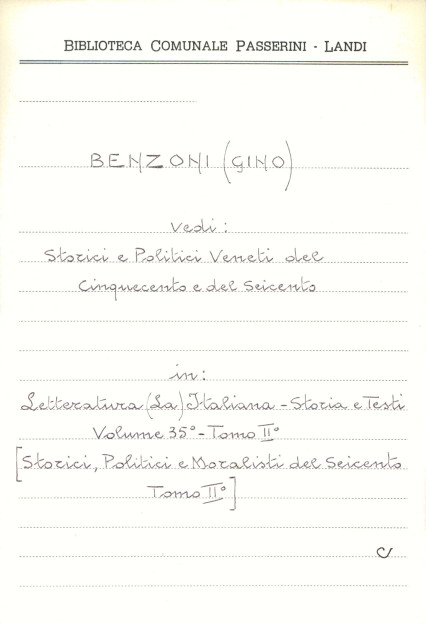 BIBLIOTECA COMUNALE PASSERINI - LANDI
BENZONI (GINO)
vedi:
Storici e Politici Veneti del
Cinquecento e del Seicento
in:
Letteratura (La) Italiana - Storia e Testi
Volume 35° - Tomo II°
[Storici, Politici e Moralisti del Seicento
Tomo II°]